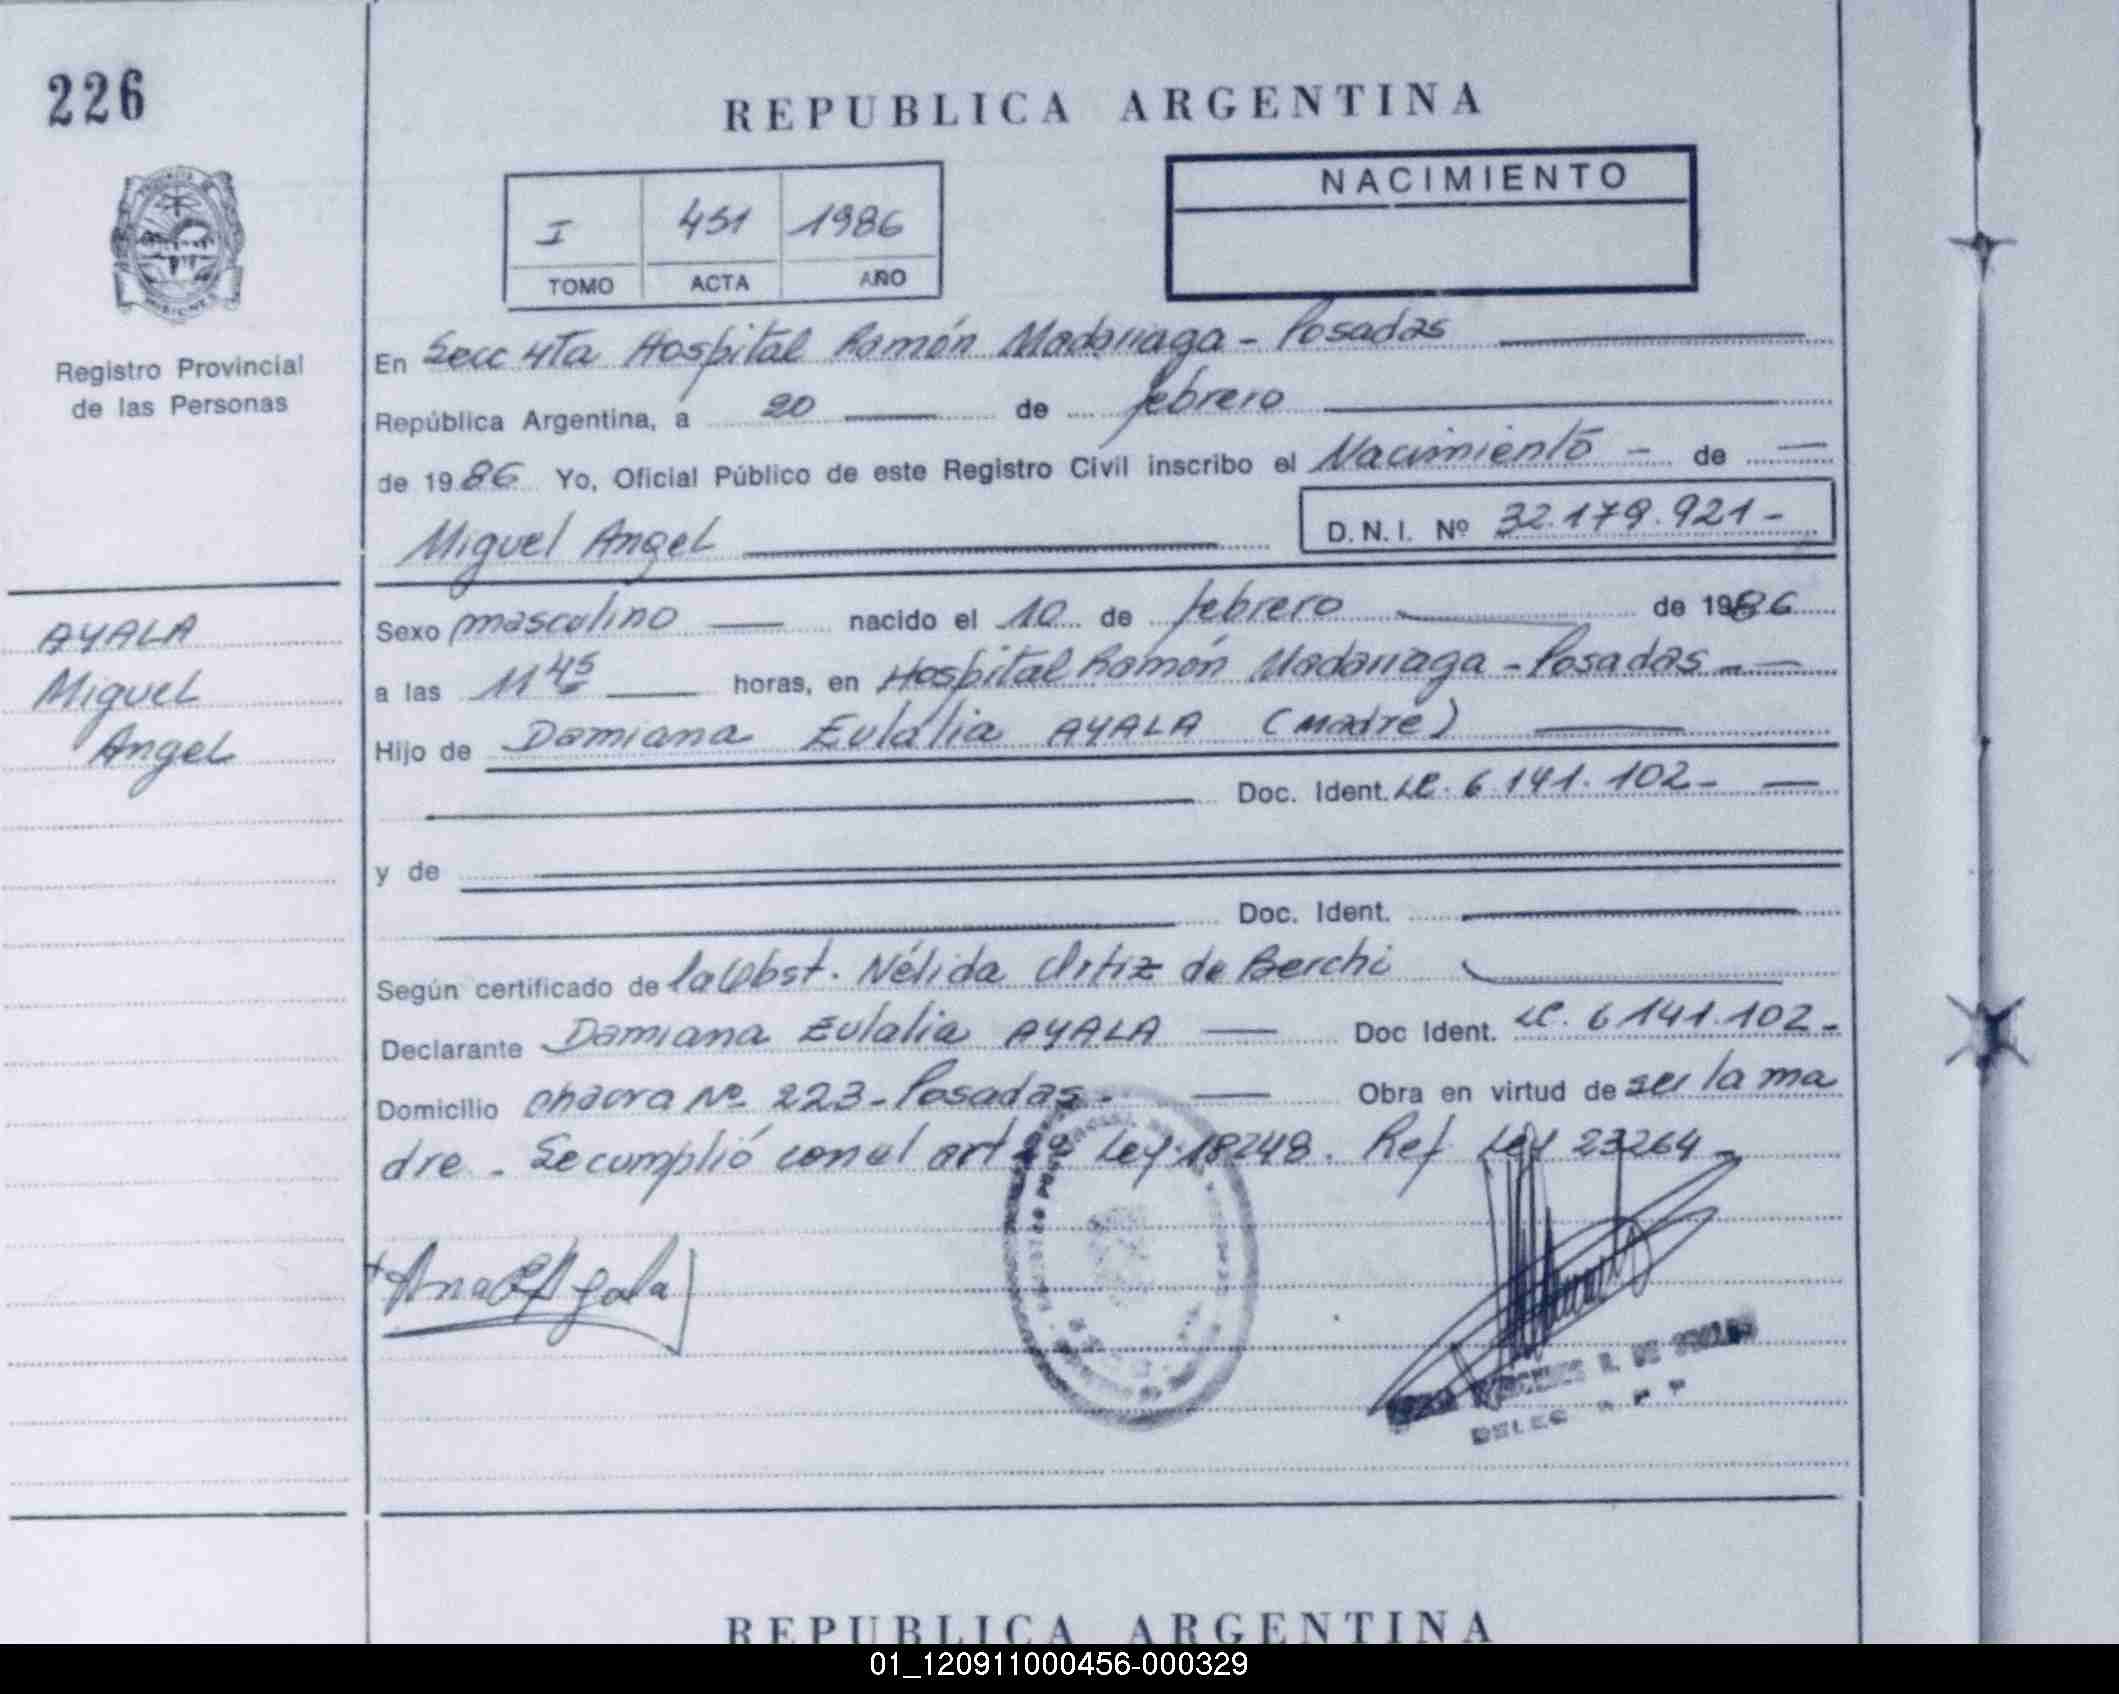 226
REPUBLICA ARGENTINA
NACIMIENTO
I 451 1986
TOMO ACTA AÑO
Registro Provincial
de las Personas
En Secc 4ta Hospital Ramón Madariaga - Posadas
República Argentina, a 20 de febrero
de 1986 Yo, Oficial Público de este Registro Civil inscribo el Nacimiento - de
Miguel Angel D.N.I. Nº 32.179.921-
AYALA
Miguel
Angel
Sexo masculino nacido el 10 de febrero de 1986
a las 11 45 horas, en Hospital Ramón Madariaga - Posadas
Hijo de Damiana Eulalia AYALA (Madre)
Doc. Ident. LC. 6.141.102-
y de
Doc. Ident.
Según certificado de la Obst. Nélida Ortiz de Berchi
Declarante Damiana Eulalia AYALA Doc Ident. LC. 6 141.102-
Domicilio chacra Nº 223 - Posadas - Obra en virtud de ser la ma
dre - Se cumplió con el art Ley 18248. Ref. Ley 23264 -
REPUBLICA ARGENTINA
01_120911000456-000329